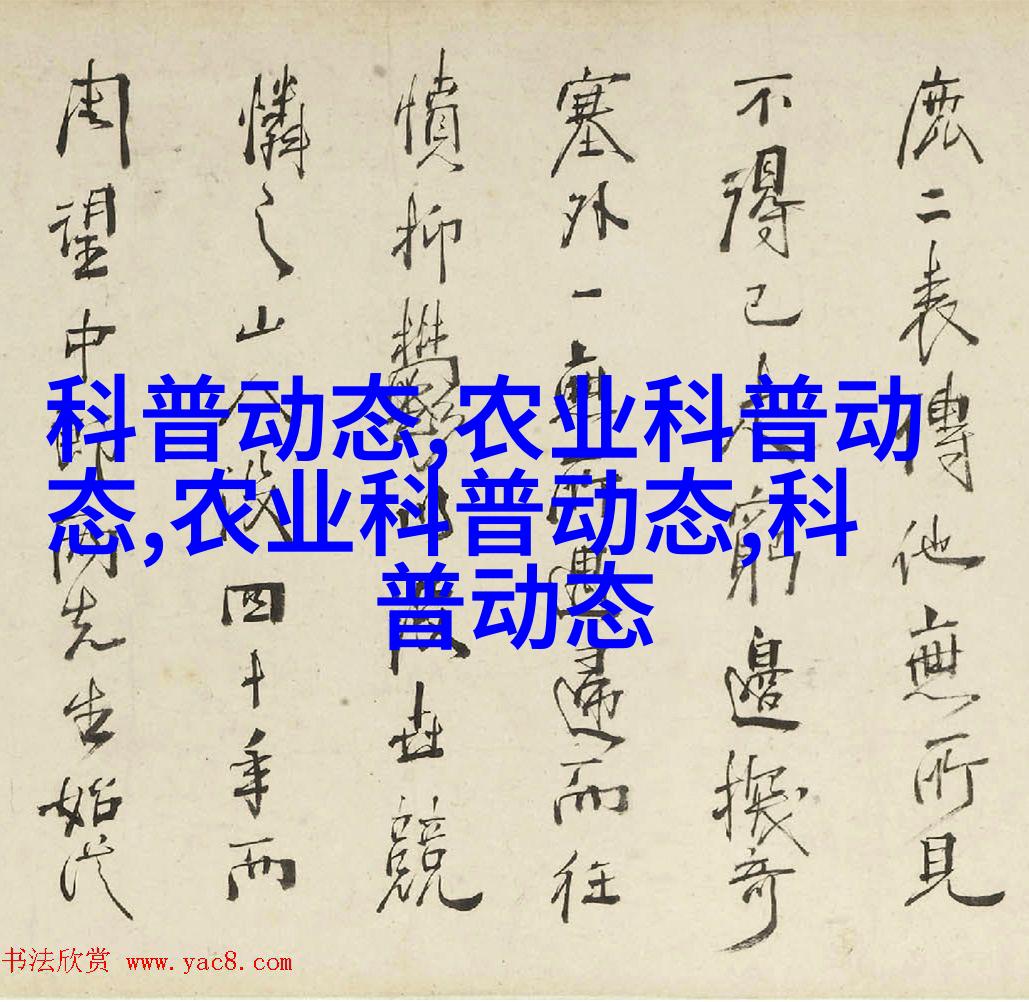 科普动态,农业科普动
态,农业科普动态,科
普动态
二表傳他無所見
不得已窮邊奇
塞外一無所而往
憤抑鬱世競
憐之山人四十年而
周望中郎兩先生始從
书法欣赏 www.yac8.com